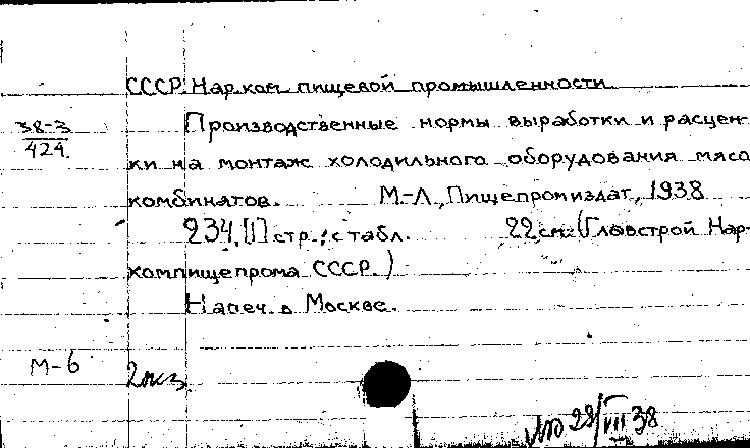 СССР. Нар. ком. пищевой промышленности
38-3
424.
Производственные нормы выработки и расцен-
ки на монтаж холодильного оборудования мясо
комбинатов. М.-Л., Пищепромиздат, 1938
234, [1] стр.; с табл. 22 см. (Главстрой Нар-
компищепрома СССР.)
Напеч. в Москве.
М-6
2 экз.
28/VIII 38